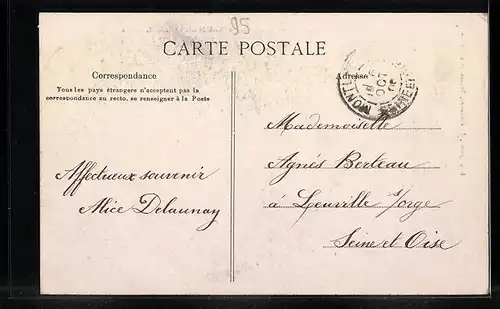 95
CARTE POSTALE
Correspondance
Tous les pays étrangers n'acceptent pas la
correspondance au recto, se renseigner à la Poste
Adresse
Mademoiselle
Agnés Berteau
à Leuville s/orge
Seine et Oise
Affectueux souvenir
Alice Delaunay